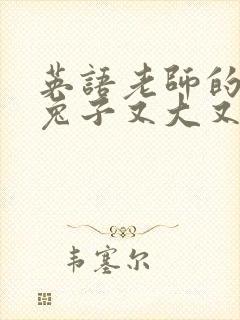 英語老師的
兔子又大又
韦塞尔